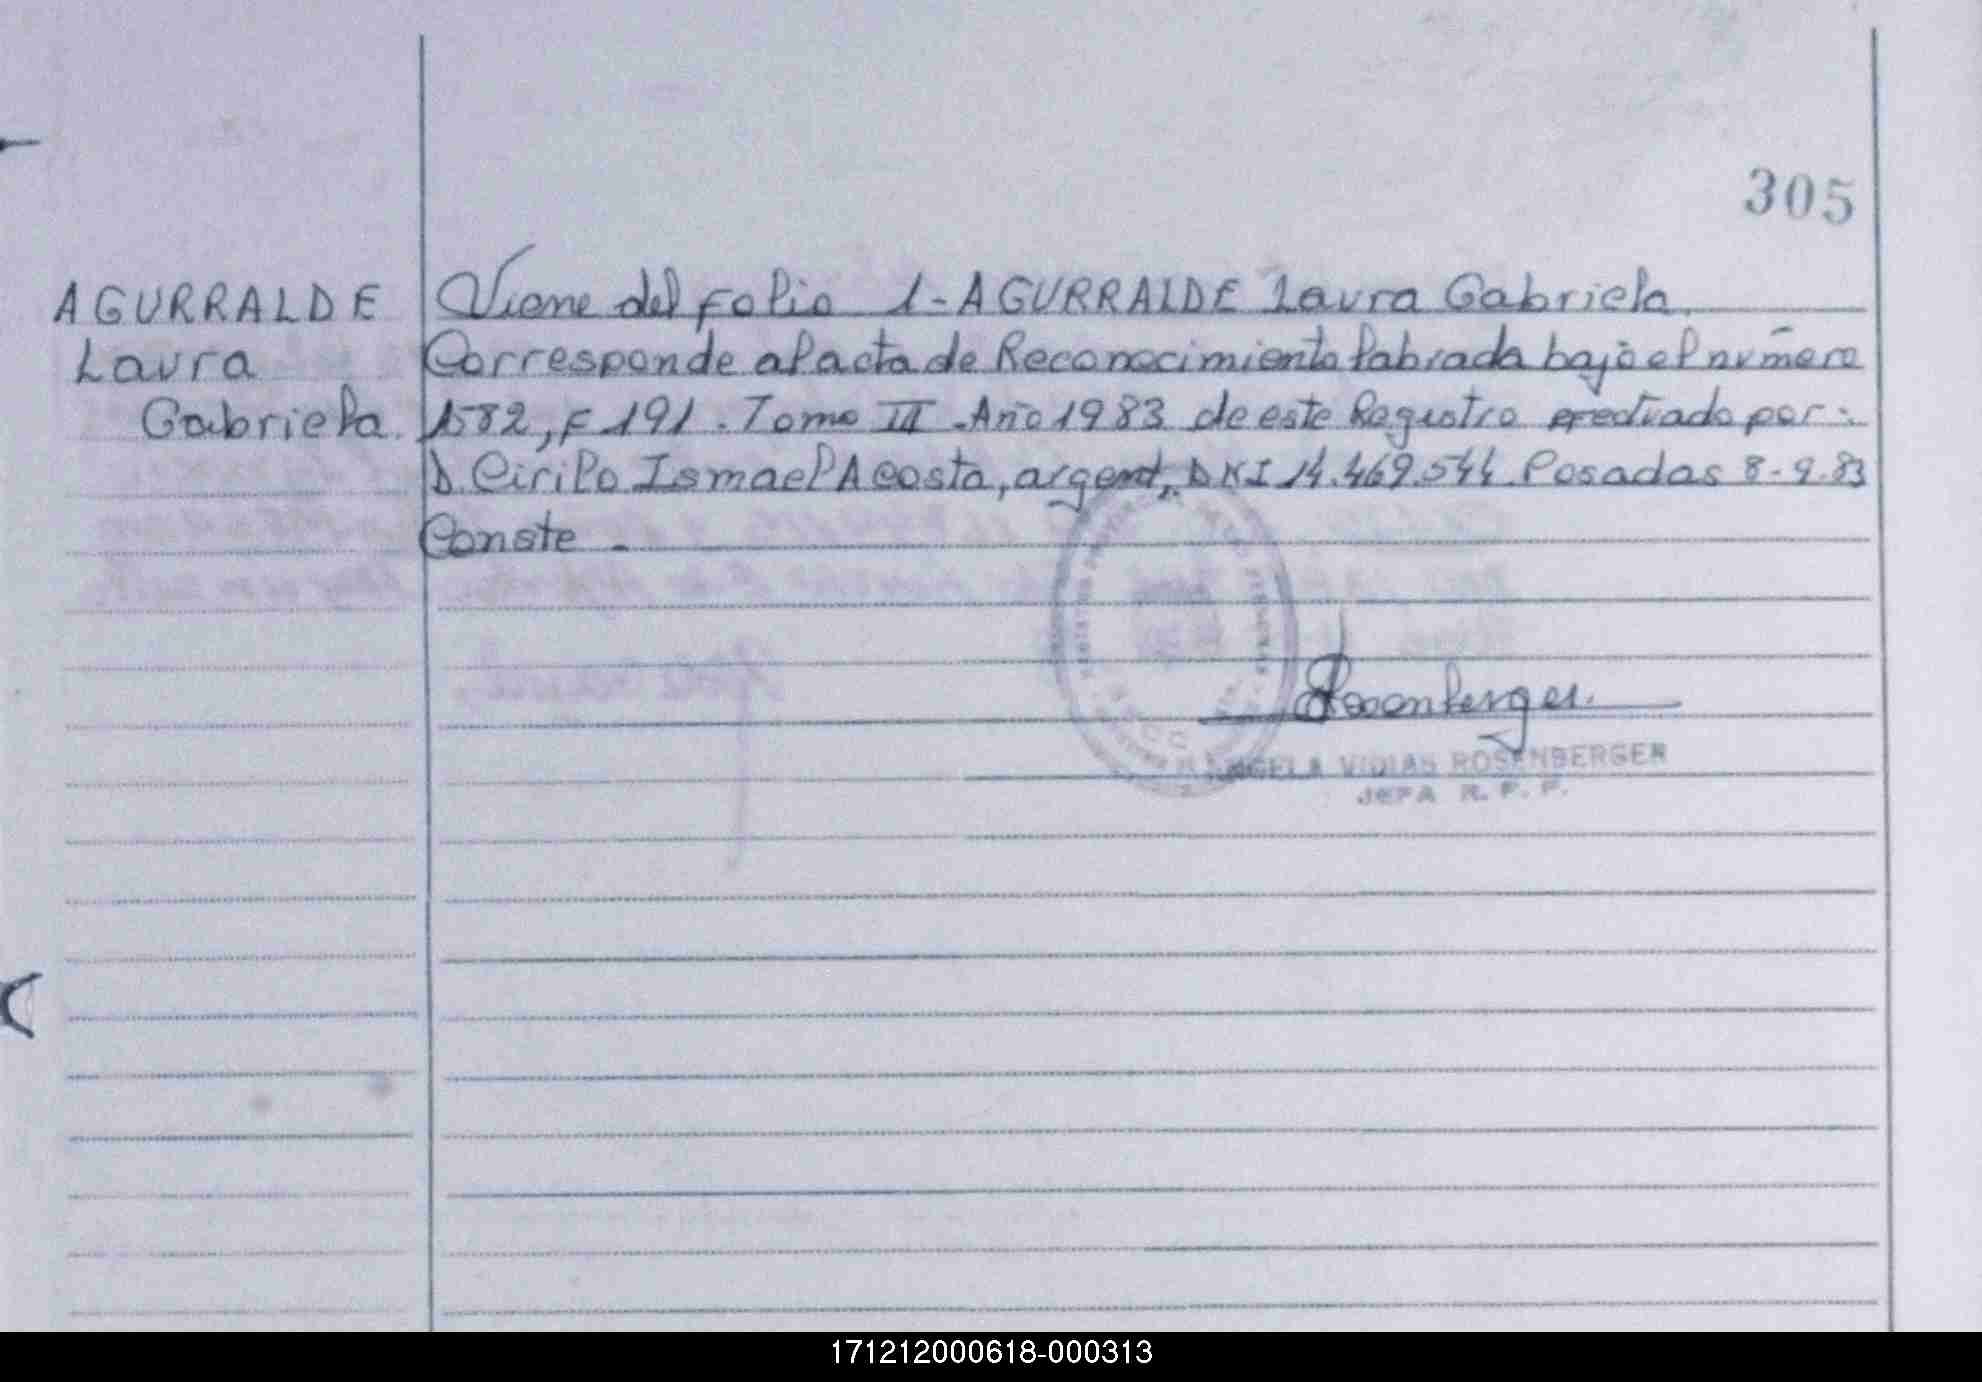 305
AGURRALDE
Laura
Gabriela.
Viene del Folio 1-AGURRALDE Laura Gabriela.
Corresponde al acta de Reconocimiento labrada bajo el número
1582, F 191. Tomo III. Año 1983 de este Registro efectuado por:
D. Cirilo Ismael Acosta, argent, DNI 14.469.544. Posadas 8-9.83
Conste.
Rosenberger.
ANGELA VIDIAS ROSENBERGER
JEFA R. P. P.
171212000618-000313